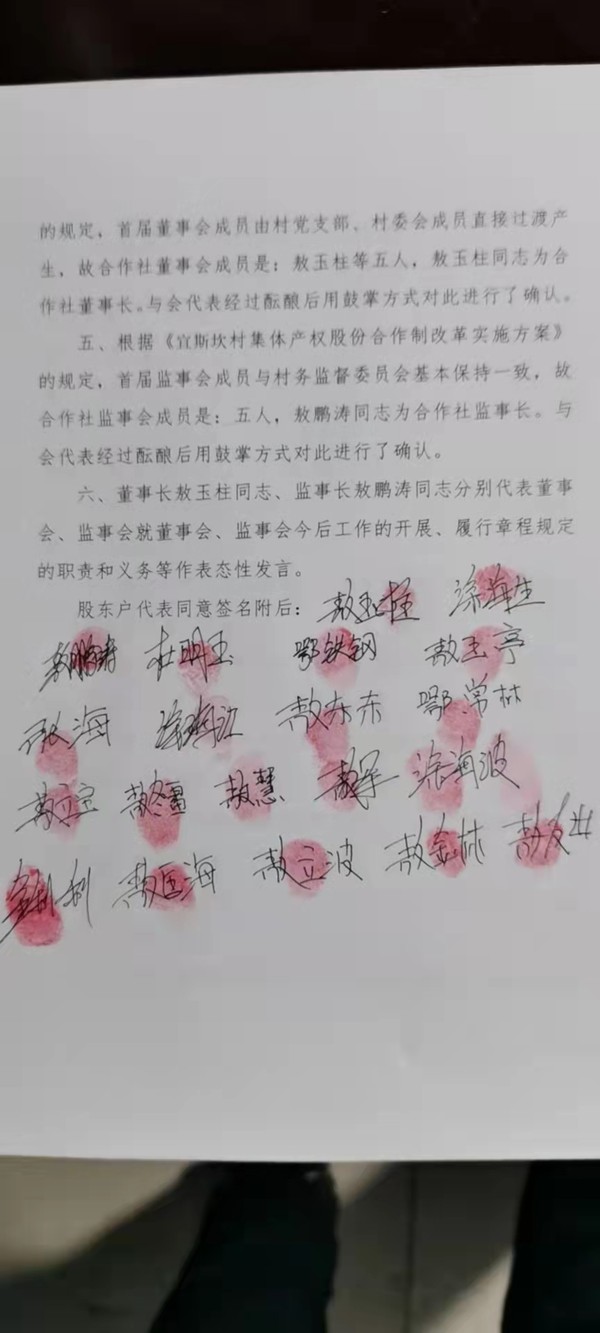 的规定，首届董事会成员由村党支部、村委会成员直接过渡产
生，故合作社董事会成员是：敖玉柱等五人，敖玉柱同志为合
作社董事长。与会代表经过酝酿后用鼓掌方式对此进行了确认。
五、根据《宜斯坎村集体产权股份合作制改革实施方案》
的规定，首届监事会成员与村务监督委员会基本保持一致，故
合作社监事会成员是：五人，敖鹏涛同志为合作社监事长。与
会代表经过酝酿后用鼓掌方式对此进行了确认。
六、董事长敖玉柱同志、监事长敖鹏涛同志分别代表董事
会、监事会就董事会、监事会今后工作的开展、履行章程规定
的职责和义务等作表态性发言。
股东户代表同意签名附后：敖玉柱 涂海生
敖鹏涛 杜明玉 鄂铁钢 敖玉亭
海 涂海江 敖东东 鄂常林
敖立宝 敖冬 敖慧 敖军 涂海波
敖海 敖立波 敖金林 敖